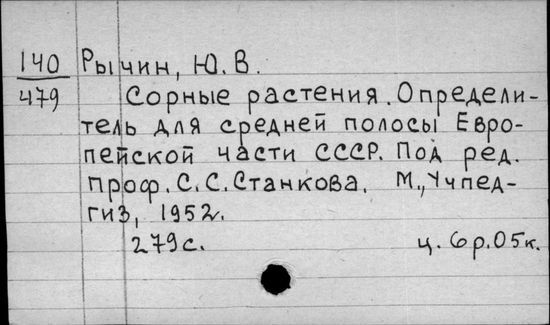 140 Рычин, Ю. В.
479 Сорные растения. Определи-
тель для средней полосы Евро-
пейской части СССР. Под ред.
проф. С. С. Станкова. М., Учпед-
гиз, 1952.
279 с. ц. 6 р. 05 к.